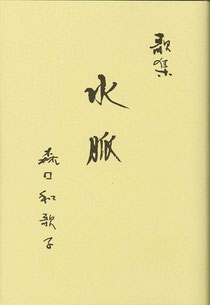 歌集
水脈
森口和歌子